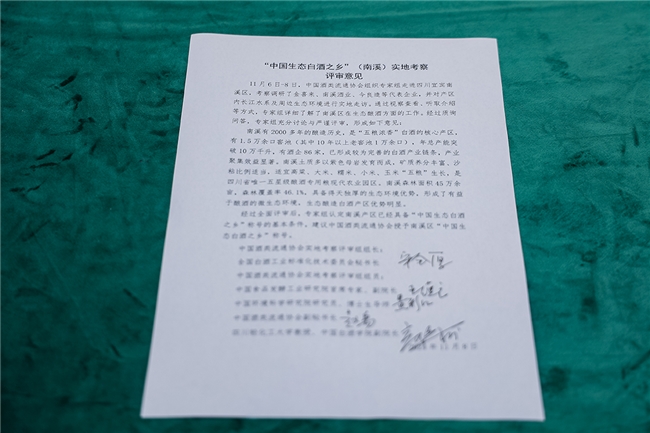 “中国生态白酒之乡”（南溪）实地考察
评审意见
11月6日-8日，中国酒类流通协会组织专家组走进四川宜宾南
溪区，考察调研了金喜来、南溪酒业、今良造等代表企业，并对产区
内长江水系及周边生态环境进行实地走访。通过视察查看、听取介绍
等方式，专家组详细了解了南溪区在生态酿酒方面的工作。经过质询
问答，专家组充分讨论与严谨评审，形成如下意见：
南溪有2000多年的酿造历史，是“五粮浓香”白酒的核心产区，
有1.5万余口窖池（其中10年以上老窖池1万余口），年总产能突
破10万千升，有酒企86家，已形成较为完善的白酒产业链条，产业
聚集效益显著。南溪土质多以紫色母岩发育而成，矿质养分丰富、沙
粘比例适当，适宜高粱、大米、糯米、小米、玉米“五粮”生长，是
四川省唯一五星级酿酒专用粮现代农业园区，南溪森林面积45万余
亩，森林覆盖率46.1%，具备得天独厚的生态环境优势，形成了有益
于酿酒的微生态环境，生态酿造白酒产区优势明显。
经过全面评审后，专家组认定南溪产区已经具备“中国生态白酒
之乡”称号的基本条件，建议中国酒类流通协会授予南溪区“中国生
态白酒之乡”称号。
中国酒类流通协会实地考察评审组组长：
全国白酒工业标准化技术委员会秘书长
中国酒类流通协会实地考察评审组组员：
中国食品发酵工业研究院首席专家、副院长
中国环境科学研究院研究员、博士生导师
中国酒类流通协会副秘书长
四川轻化工大学教授、中国白酒学院副院长
年11月8日